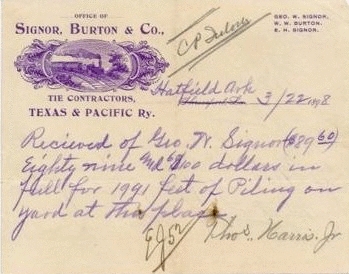 OFFICE OF
SIGNOR, BURTON & CO.,
TIE CONTRACTORS,
TEXAS & PACIFIC RY.
GEO. W. SIGNOR,
W. W. BURTON,
E. H. SIGNOR.
Hatfield Ark
3/22 1898
Recieved of Geo, W. Signor ($89 60)
Eighty nine and 60/100 dollars in
full for 1991 feet of Piling on
yard at this place
Thos. Harris. Jr